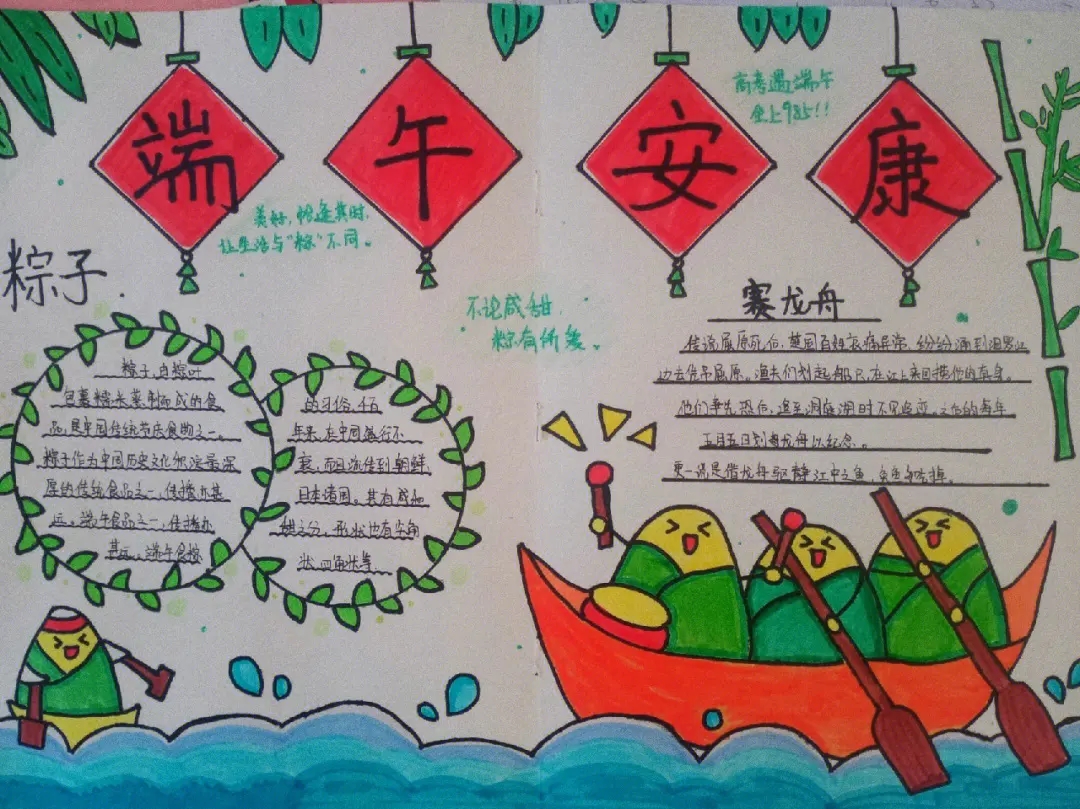 端午安康
高考遇端午
金上985!!
美好,恰逢其时,
让生活与"粽"不同。
粽子
不论咸甜,
粽有所爱。
粽子,由粽叶
包裹糯米蒸制而成的食
品,是中国传统节庆食物之一。
粽子作为中国历史文化积淀最深
厚的传统食品之一,传播亦甚
远。端午食品之一,传播亦
甚远。端午食粽
的习俗,千百
年来,在中国盛行不
衰,而且流传到朝鲜
日本诸国。其有咸和
甜之分,形状也有尖角
状、四角状等
赛龙舟
传说屈原死后,楚国百姓哀痛异常,纷纷涌到汨罗江
边去凭吊屈原。渔夫们划起船只,在江上来回捞他的真身。
他们争先恐后,追至洞庭湖时不见踪迹。之后的每年
五月五日划龙舟以纪念。
更一说是借龙舟驱散江中之鱼,